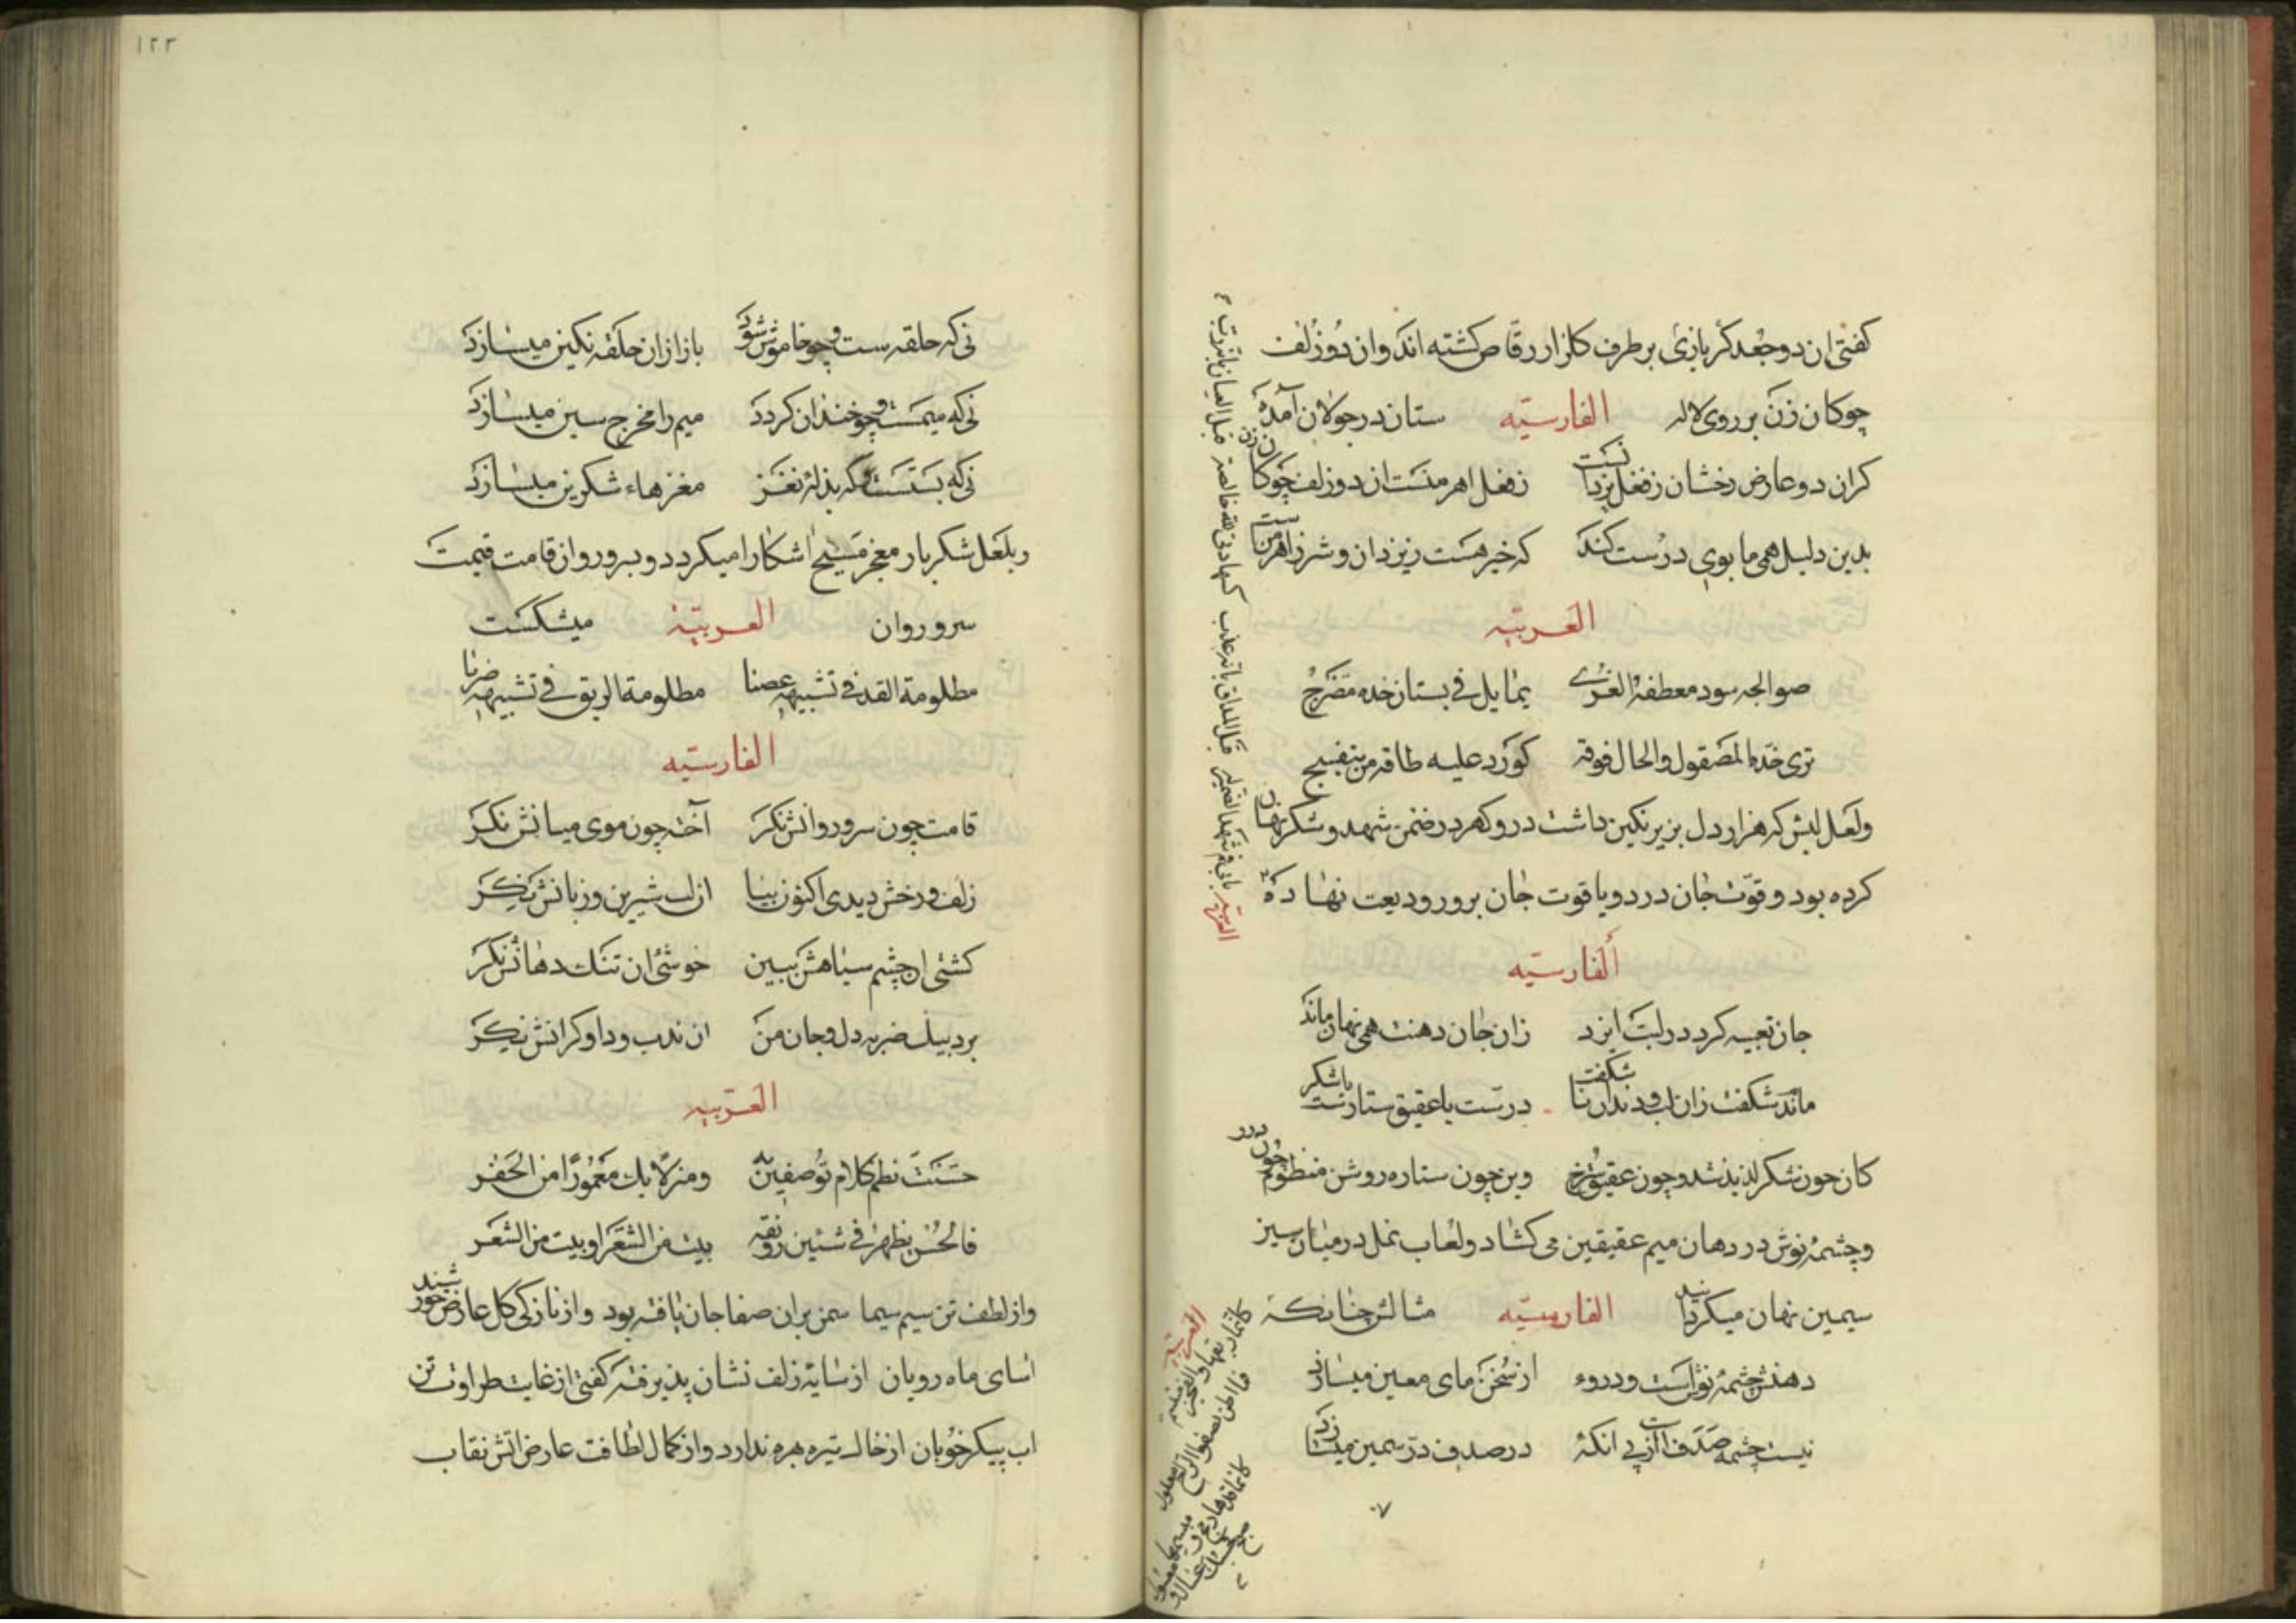 كفتی ان دو جعد كژ بازی بر طرف كلزار رقاص كشته اند وان دو زلف
چوكان زن بر روی لاله ستان در جولان آمده
الفارسیّه
كران دو عارض رخشان ز فعل یزدانست ز فعل اهرمنست ان دو زلف چوكان زن
بدین دلیل همی مانوی درست كند كه خیر هست ز یزدان و شر ز اهرمنست
العربیّه
صوالجه سود معطفة العری یمایل فی بستان خده مضرج
تری خده المصقول والخال فوقه كورد علیه طاقه من بنفسج
ولعل لبش كه هزار دل بزیر نكین داشت در و كهر در ضمن شهد و شكر نهان
كرده بود و قوت جان در دو یاقوت جان برور ودیعت نهاده
الفارسیّه
جان تعبیه كرد در لبت ایزد زان جان دهنت همی نهان ماند
ماند شكفت زان لب و دندان با شكفت درست یا عقیق ستارست یا شكر
كان چون شكر لذیذ شد و چون عقیق سرخ وین چون ستاره روشن منظوم چون درر
و چشمهٔ نوش در دهان میم عقیقین می كشاد و لعاب نمل در میان سین
سیمین نهان میكردانید مثالش چنانكه
الفارسیّه
دهنش چشمهٔ نوش است و درو از سخن مای معین میسازد
نیست چشمه صدف است از پی انكه در صدف در ثمین میسازد
العربیه
۱۲۲
نی كه حلقه ست و چو خاموش شود باز ازان حلقه نكین میسازد
نی كه میمست و چو خندان كردد میم را مخرج سین میسازد
نی كه بستست و كه بذلهٔ نغز مغزهاء شكرین میسازد
و بلعل شكربار معجز مسیح اشكارا میكرد و بسرو روان قامت قیمت
سرو روان میشكست
العربیّه
مظلومة القد فی تشبیهه غصنا مظلومة الریق فی تشبیهه ضربا
الفارسیّه
قامت چون سرو روانش نكر آخته چون موی میانش نكر
زلف و رخش دیدی اكنون بیا ان لب شیرین و زبانش نكر
كشتی ان چشم سیاهش ببین خوشی ان تنك دهانش نكر
برد بیك ضربه دل و جان من ان ندب و داو كرانش نكر
العربیّه
حسنت نظم كلام توصفین به ومنزلا بك معمورا من الخفر
فالحسن یظهر فی شیئین رونقه بیت من الشعر او بیت من الشعر
واز لطف تن سیم سیما سمن بران صفا جان یافته بود واز نازكی كل عارض خورشید
اسای ماه رویان از سایهٔ زلف نشان پذیرفته كفتی از غایت طراوت تن
اب پیكر خوبان از خاك تیره بهره ندارد واز كمال لطافت عارض اتش نقاب